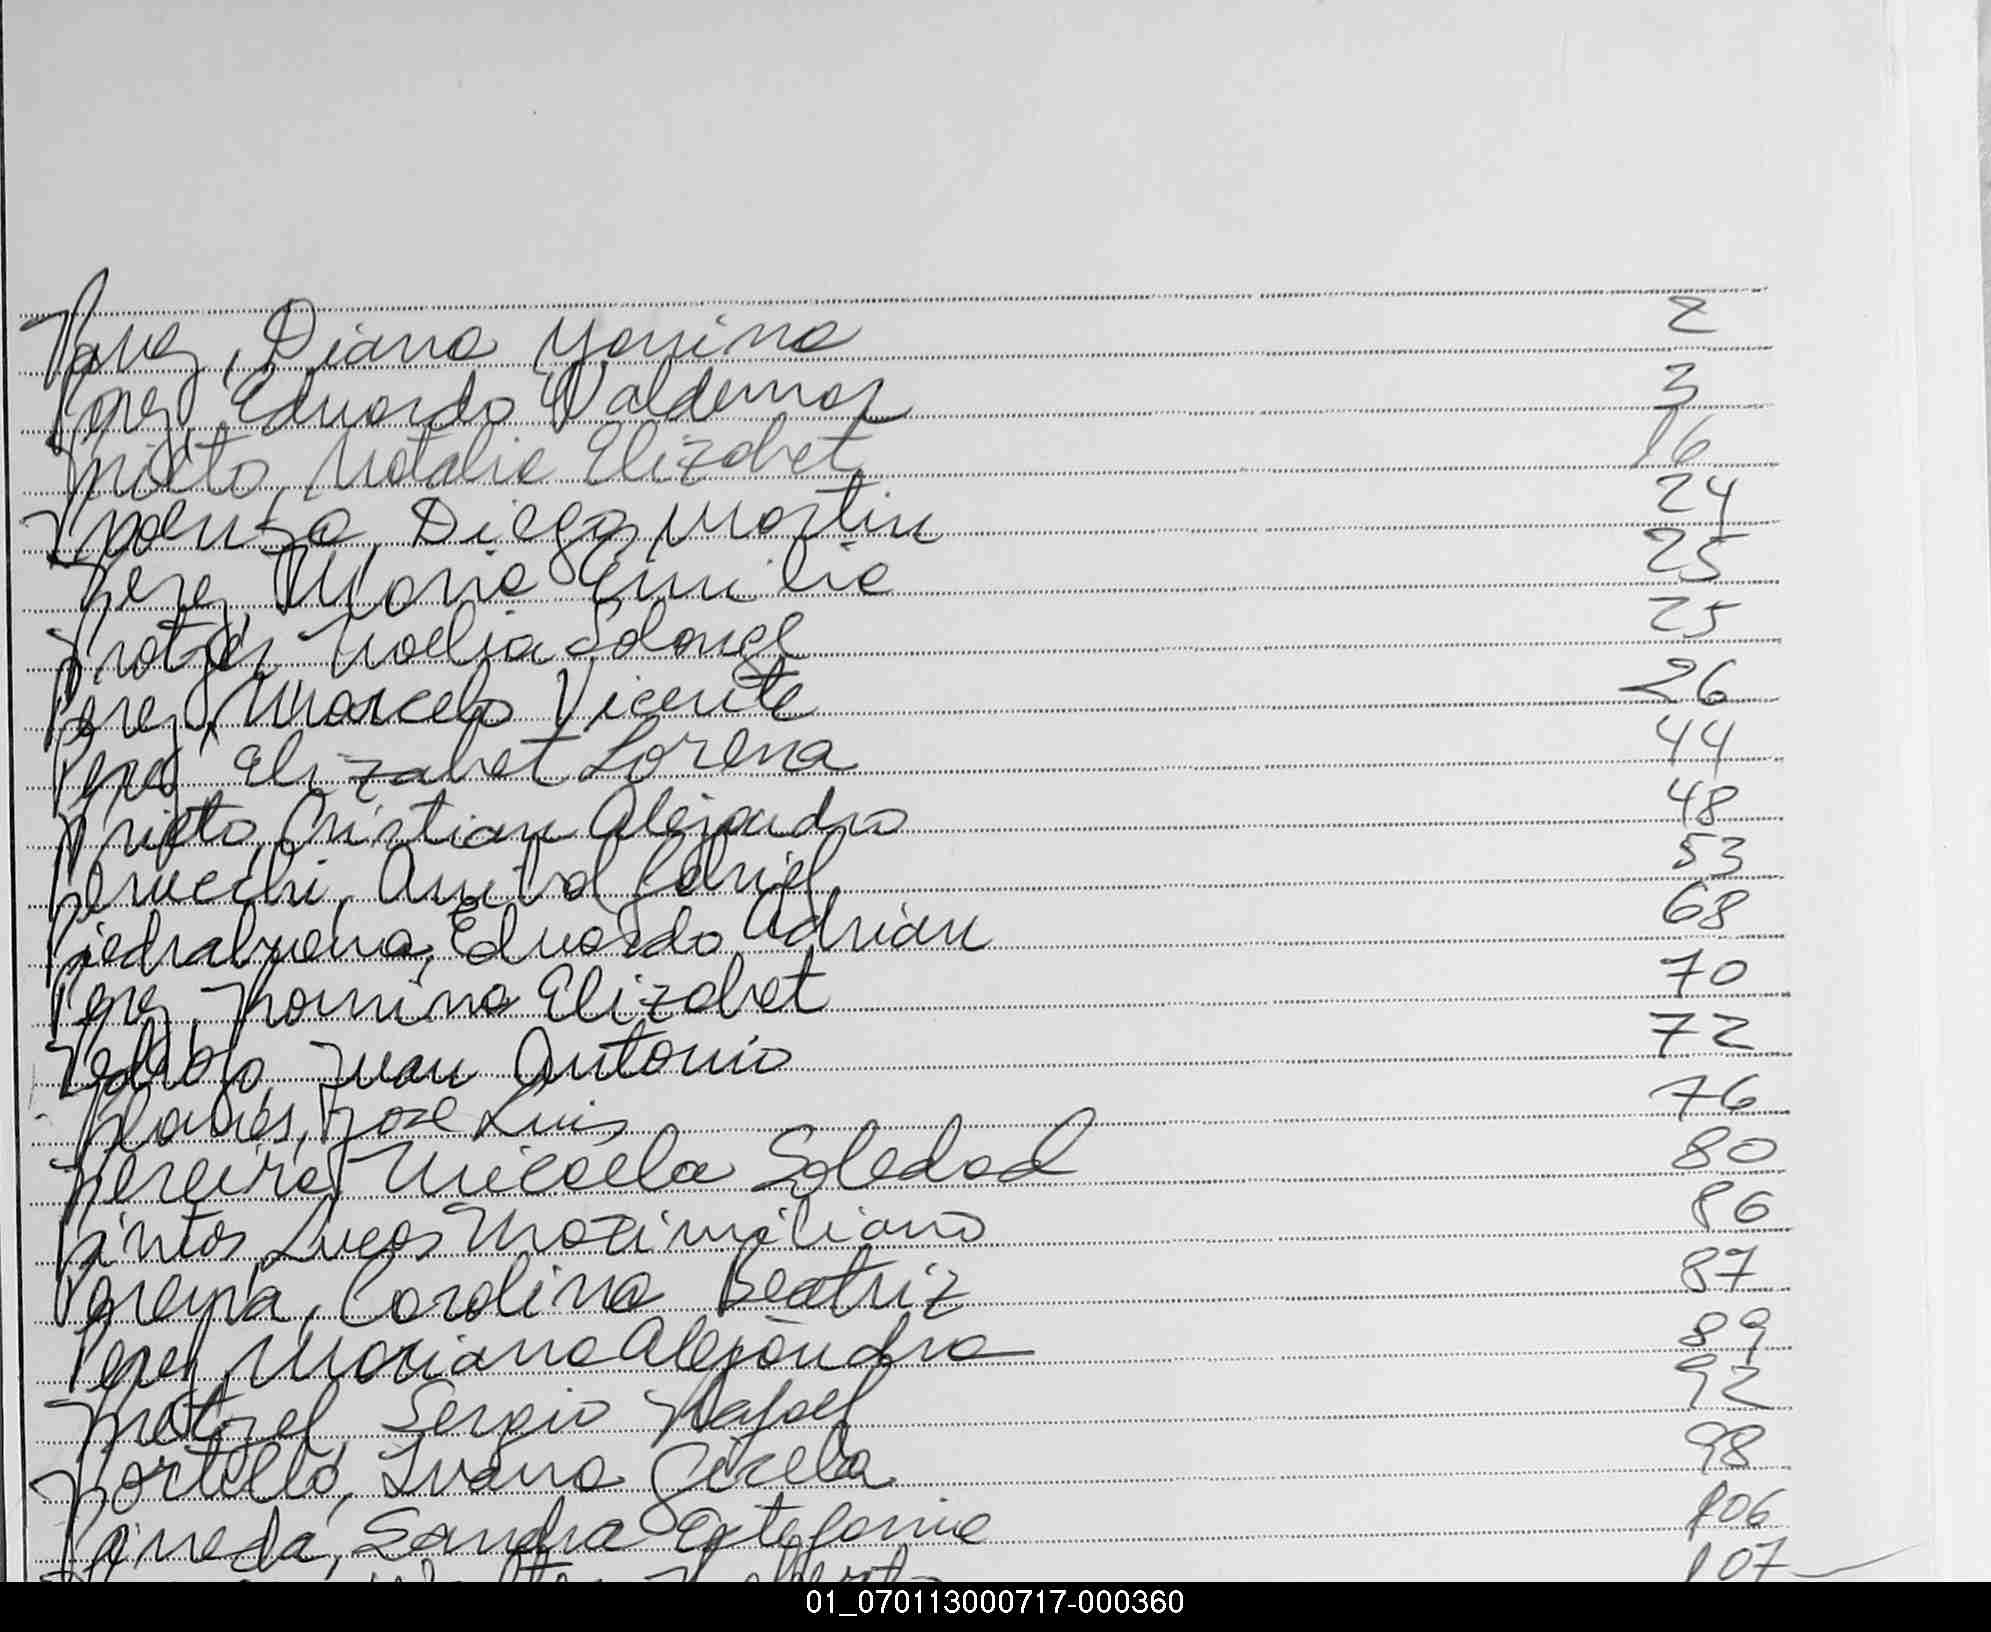 Paez, Diana Yanina 2
Paez, Eduardo Valdemar 3
Prieto, Natalia Elizabet 16
Diego Martin 24
Perez, Maria Emilia 25
Noelia Solange 25
Perez, Marcelo Vicente 26
Elizabet Lorena 44
Prieto, Cristian Alejandro 48
Perucchi, Anibal Gabriel 53
Piedrabuena, Eduardo Adrian 68
Perez, Romina Elizabet 70
Pedrozo, Juan Antonio 72
Planes, Jose Luis 76
Pereira, Micaela Soledad 80
Pintos, Lucas Maximiliano 86
Pereyra, Carolina Beatriz 87
Perez, Mariana Alejandra 89
Sergio Rafael 92
Portillo, Ivana Gisela 98
Pineda, Sandra Estefania 106
107
01_070113000717-000360